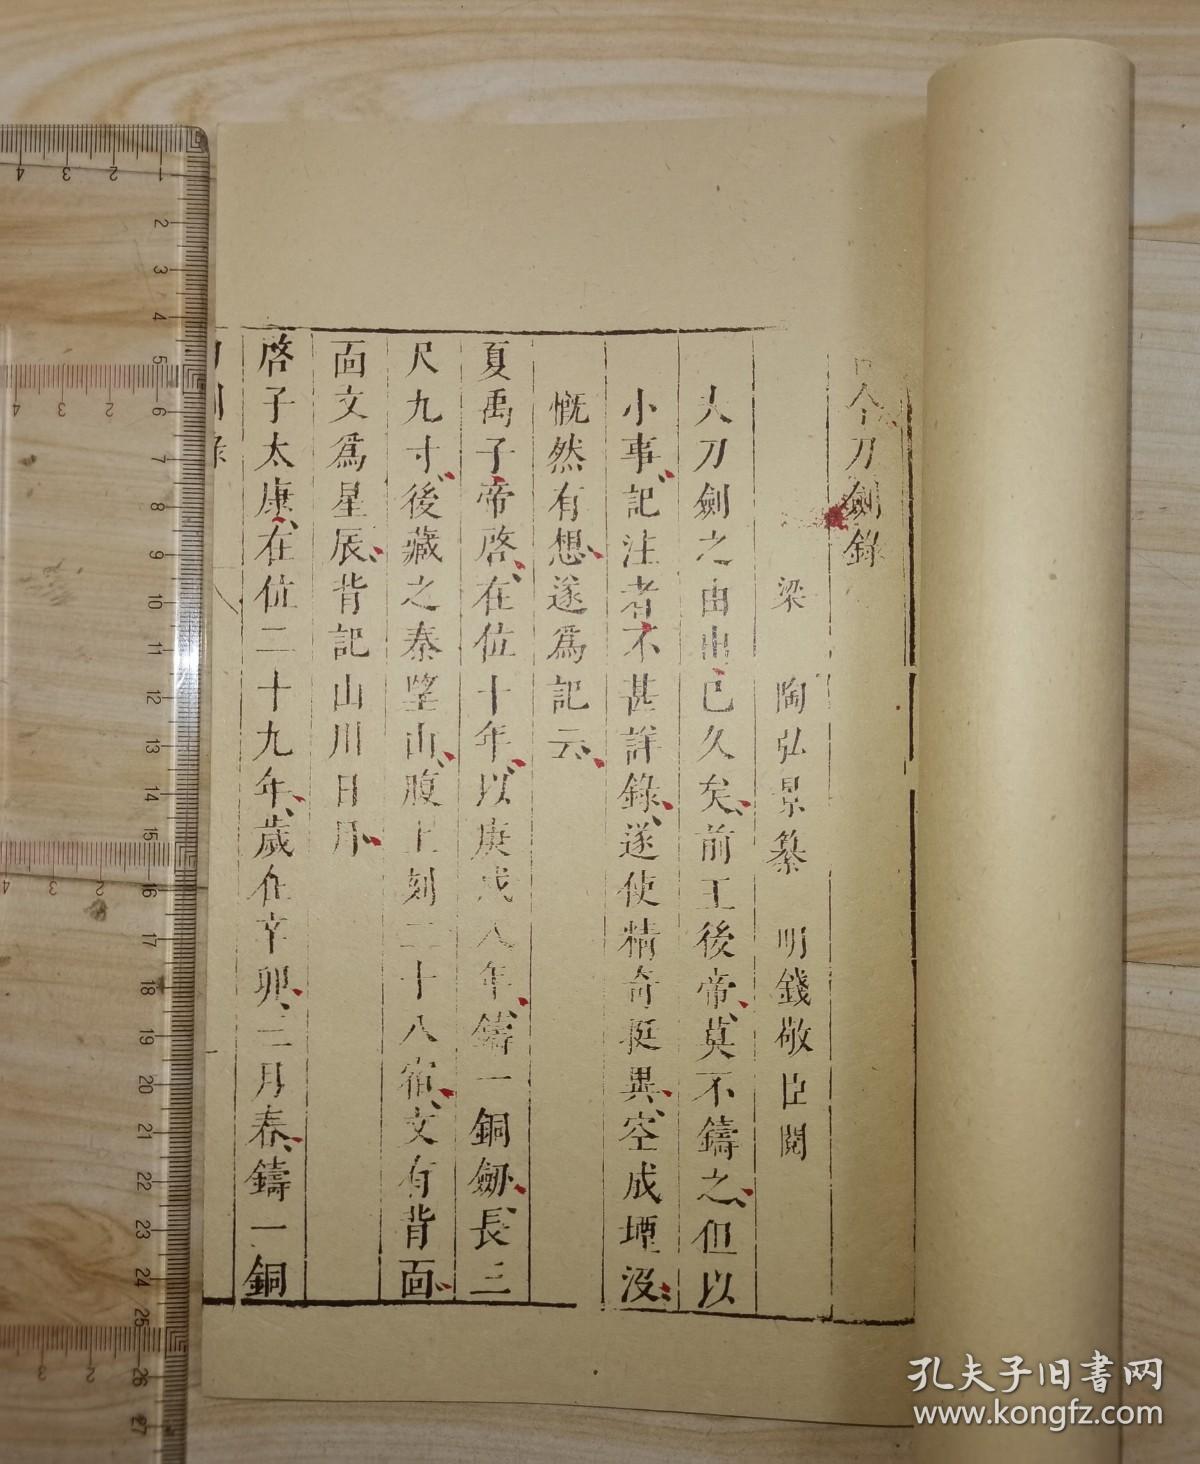 古今刀劍錄
梁 陶弘景纂 明錢敬臣閱
夫刀劍之由出已久矣、前王後帝、莫不鑄之、但以
小事、記注者不甚詳錄、遂使精奇挺異、空成堙沒、
慨然有想、遂爲記云、
夏禹子帝啓、在位十年、以庚戌八年、鑄一銅劒、長三
尺九寸、後藏之秦望山、腹上刻二十八宿、文有背面、
面文爲星辰、背記山川日月、
啓子太康、在位二十九年、歲在辛卯、三月春、鑄一銅
孔夫子旧书网
www.kongfz.com